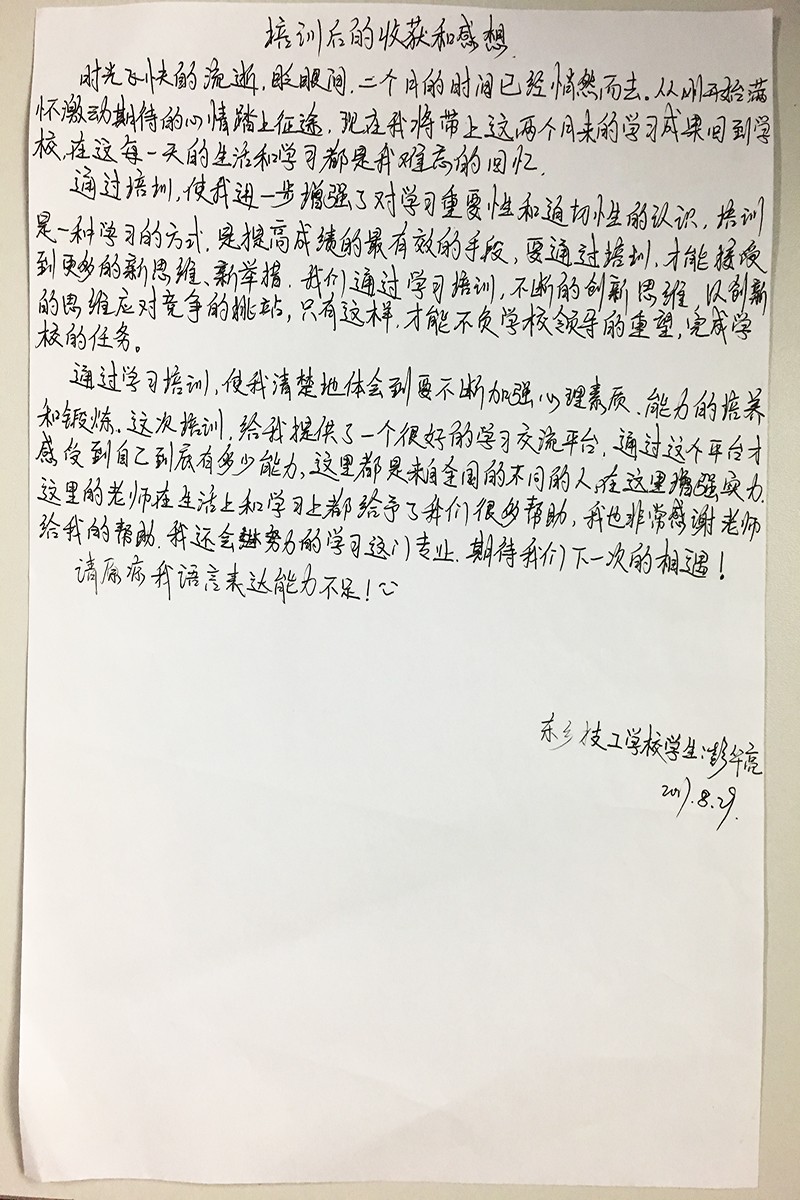 培训后的收获和感想
时光飞快的流逝，眨眼间，二个月的时间已经悄然而去。从刚开始满
怀激动期待的心情踏上征途，现在我将带上这两个月来的学习成果回到学
校，在这每一天的生活和学习都是我难忘的回忆．
通过培训，使我进一步增强了对学习重要性和迫切性的认识，培训
是一种学习的方式，是提高成绩的最有效的手段，要通过培训，才能接受
到更多的新思维、新举措．我们通过学习培训，不断的创新思维，以创新
的思维应对竞争的挑站，只有这样，才能不负学校领导的重望，完成学
校的任务。
通过学习培训，使我清楚地体会到要不断加强心理素质、能力的培养
和锻炼．这次培训，给我提供了一个很好的学习交流平台，通过这个平台才
感受到自己到底有多少能力，这里都是来自全国的不同的人，在这里增强实力．
这里的老师在生活上和学习上都给予了我们很多帮助，我也非常感谢老师
给我的帮助．我还会努力的学习这门专业．期待我们下一次的相遇！
请原谅我语言表达能力不足！
东乡技工学校学生：彭华亮
2017.8.29.